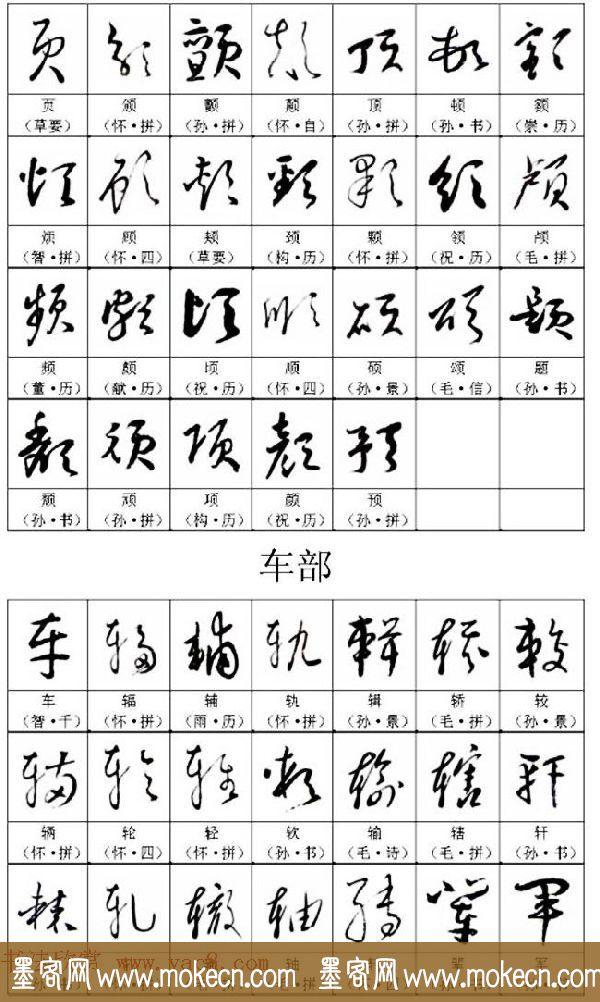 页 颁 颤 颠 顶 顿 额
（草要） （怀·拼） （孙·拼） （怀·自） （孙·拼） （孙·书） （崇·历）
烦 顾 颊 颈 颗 领 颅
（智·拼） （怀·四） （草要） （构·历） （怀·拼） （祝·历） （毛·拼）
频 颇 顷 顺 硕 颂 题
（董·历） （献·历） （祝·历） （怀·四） （孙·景） （毛·信） （孙·书）
颓 顽 项 颜 预
（孙·书） （孙·拼） （构·历） （祝·历） （孙·拼）
车部
车 辐 辅 轨 辑 轿 较
（智·千） （怀·拼） （雨·历） （怀·拼） （孙·景） （毛·拼） （孙·景）
辆 轮 轻 软 输 辖 轩
（怀·拼） （怀·四） （怀·拼） （孙·书） （毛·诗） （毛·拼） （孙·书）
墨客网 www.mokecn.com 墨客网 www.mokecn.com